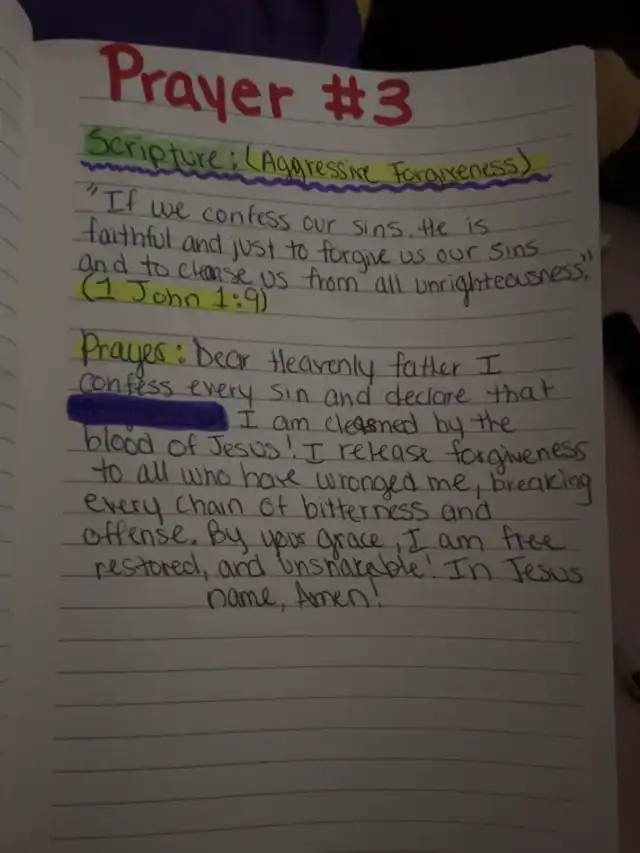 Prayer #3
Scripture: (Aggressive Forgiveness)
"If we confess our sins. He is
faithful and just to forgive us our sins
and to cleanse us from all unrighteousness."
(1 John 1:9)
Prayer: Dear Heavenly father I
confess every sin and declare that
I am cleasned by the
blood of Jesus! I release forgiveness
to all who have wronged me, breaking
every chain of bitterness and
offense. By your grace, I am free
restored, and unshakable! In Jesus
name, Amen!